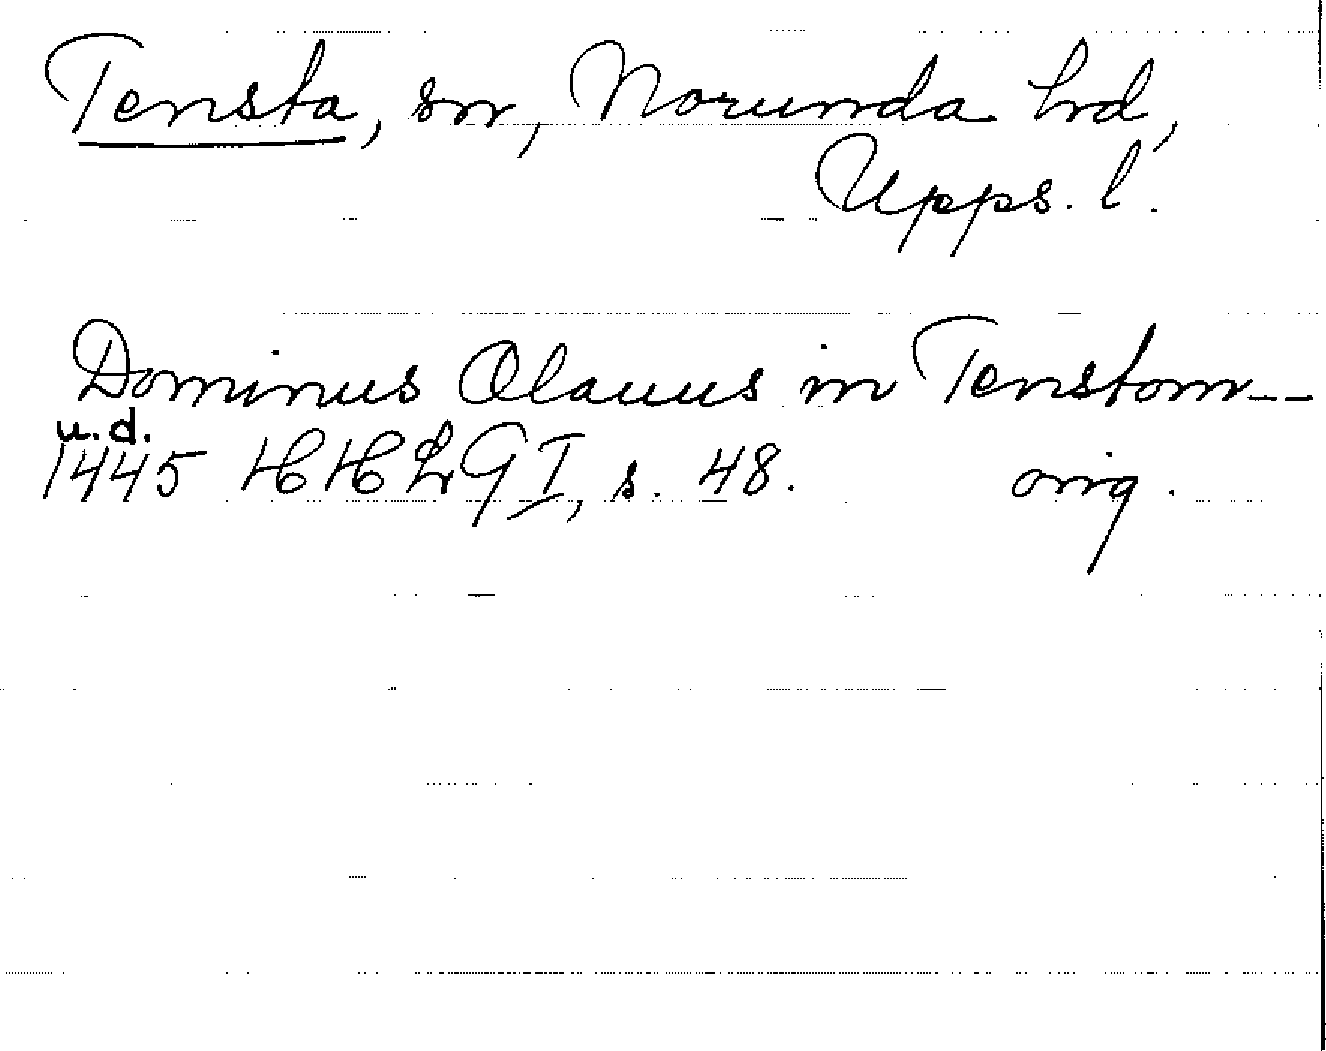 Tensta, sn, Norunda hd,
Upps. l.
Dominus Olauus in Tenstom--
u.d.
1445 HHLG I, s. 48. orig.